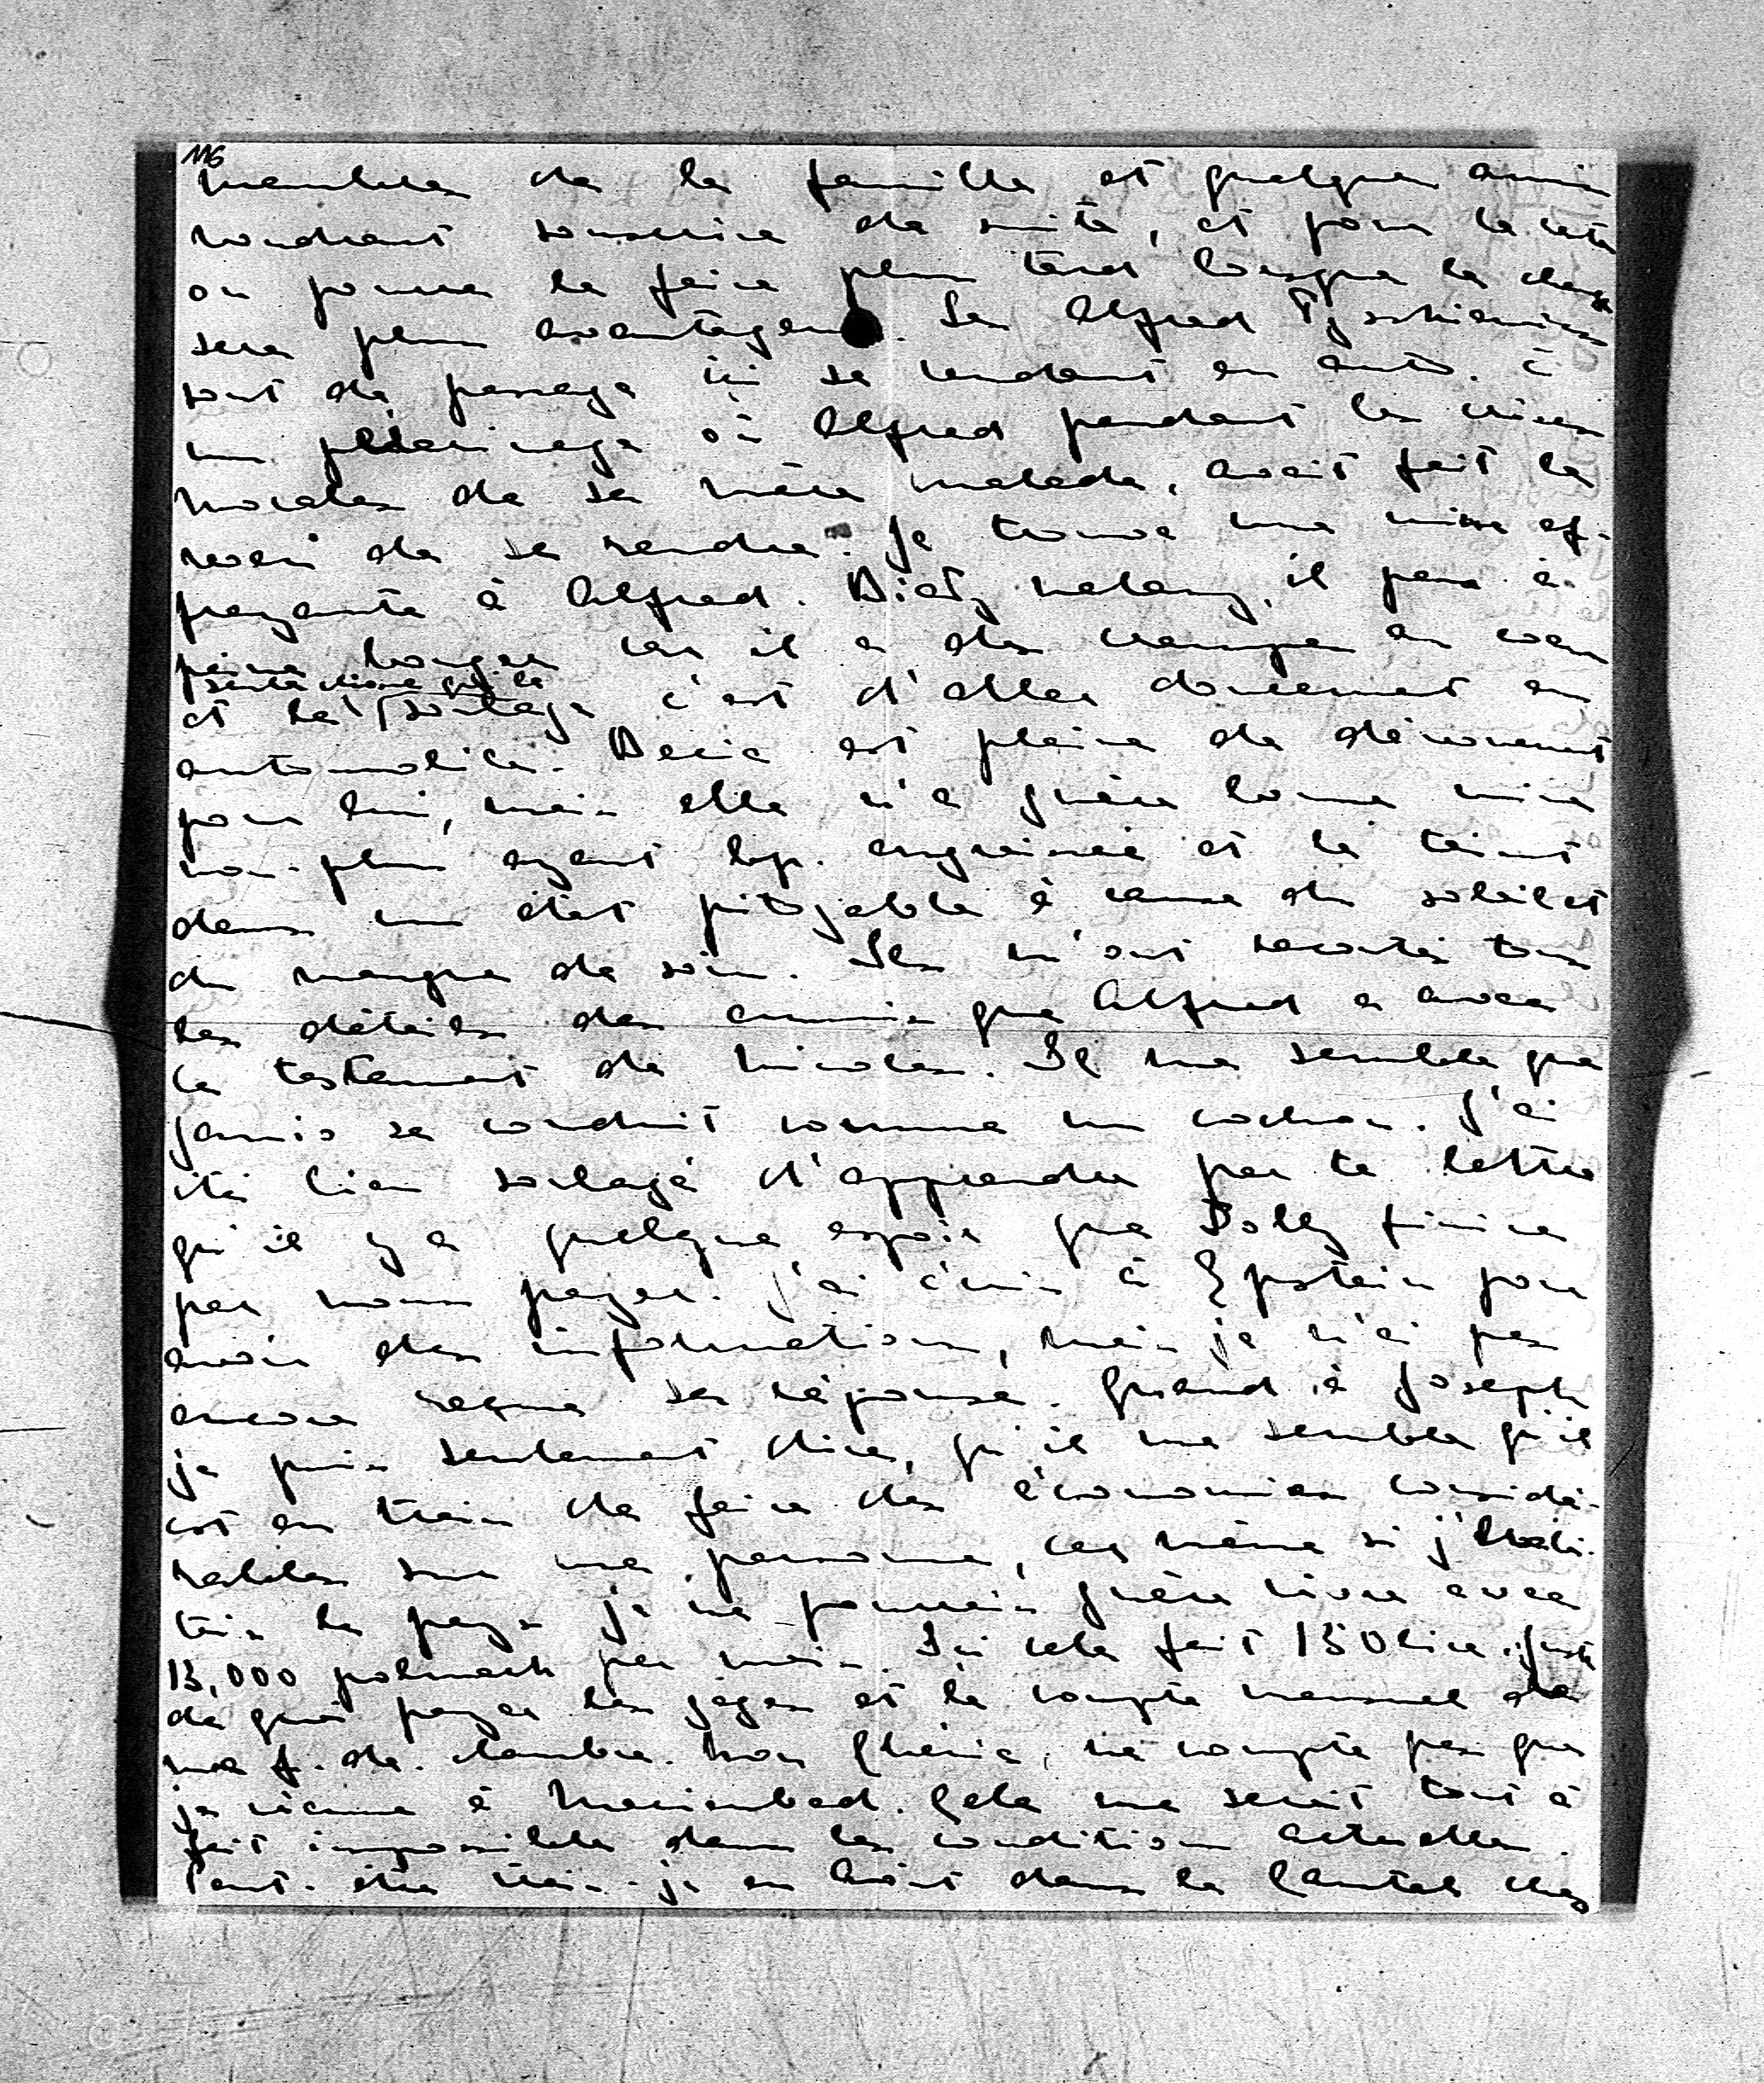 116
membres de la famille et quelques amis
voudront souscrire de suite, et pour le reste
on pourra le faire plus tard lorsque le change
sera plus avantageux. Les Alfred Tyszkiewicz
sont de passage ici se rendant en auto. à
un pélerinage où Alfred pendant les crises
morales de sa mère malade, avait fait le
voeu de se rendre. Je trouve une mine ef-
frayante à Alfred. Biedny, il peut à
peine bouger car il a des crampes au coeur
et la seule chose qui le soulage c'est d'aller doucement en
automobile. est pleine de dévouement
pour lui, mais elle n'a guère bonne mine
non-plus ayant bcp. engraissé et le teint
dans un état pitoyable à cause du soleil et
du manque de soin. Ils m'ont raconté tous
les détails des ennuis que Alfred a avec
le testament de Nicolas. Il me semble que
se conduit comme un cochon. J'ai
été bien soulagé d'apprendre par ta lettre
qu'il y a quelque espoir que Dolly finira
par nous payer. J'ai écris à Epstein pour
avoir des informations, mais je n'ai pas
encore reçue sa réponse. Quand à Joseph
je puis seulement dire, qu'il me semble qu'il
est en train de faire des économies considé-
rables sur ma personne, car même si j'habi-
tais le pays je ne pourrais guère vivre avec
15,000 polmark par mois. Ici cela fait 150 lire, juste
de quoi payer les gages et le compte mensuel de
ma f. de. chambre. Mon Chéric, ne compte pas que
je vienne à Marienbad. Cela me serait tout à
fait impossible dans les conditions actuelles.
Peut-être irais-je en Août dans le Cantal chez